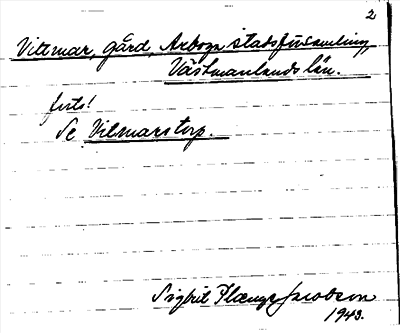 2
Vittmar, gård, Arboga stadsförsamling,
Västmanlands län.
forts!
Se Vilmarstorp.
Sigbrit Plænge Jacobson
1943.